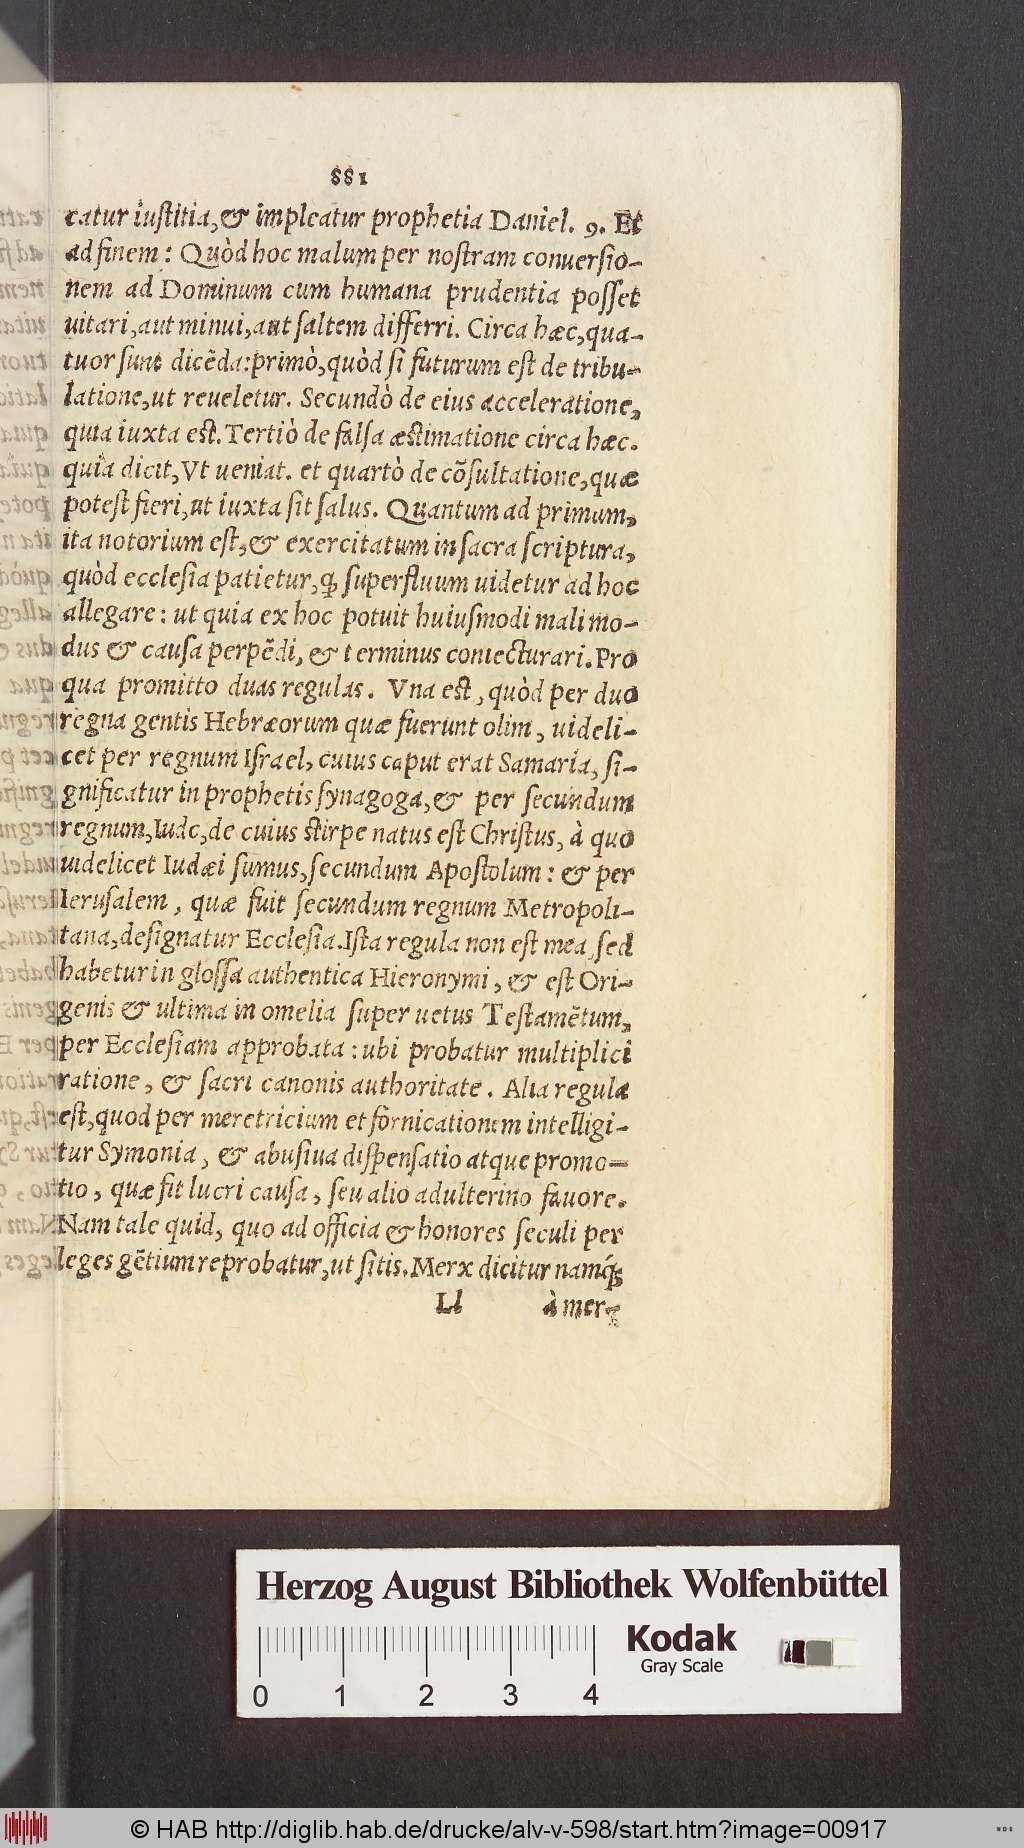 881
catur iuſtitia,& impleatur prophetia Daniel. 9. Et
ad finem: Quòd hoc malum per noſtram conuerſio-
nem ad Dominum cum humana prudentia poſſet
uitari,aut minui,aut ſaltem differri. Circa hæc,qua-
tuor ſunt dicẽda:primò,quòd ſi futurum eſt de tribu-
latione,ut reueletur. Secundò de eius acceleratione,
quia iuxta eſt.Tertiò de falſa æſtimatione circa hæc.
quia dicit,Vt ueniat. et quartò de cõſultatione,quæ
poteſt fieri,ut iuxta ſit ſalus. Quantum ad primum,
ita notorium eſt,& exercitatum in ſacra ſcriptura,
quòd eccleſia patietur,ꝙ ſuperfluum uidetur ad hoc
allegare: ut quia ex hoc potuit huiuſmodi mali mo-
dus & cauſa perpẽdi, & t erminus coniecturari.Pro
qua promitto duas regulas. Vna eſt, quòd per duo
regna gentis Hebræorum quæ fuerunt olim, uideli-
cet per regnum Iſrael, cuius caput erat Samaria, ſi-
gnificatur in prophetis ſynagoga,& per ſecundum
regnum,Iudę,de cuius ſtirpe natus eſt Chriſtus, à quo
uidelicet Iudæi ſumus,ſecundum Apoſtolum: & per
Ieruſalem, quæ fuit ſecundum regnum Metropoli-
tana,deſignatur Eccleſia.Iſta regula non eſt mea,ſed
habetur in gloſſa authentica Hieronymi, & eſt Ori-
genis & ultima in omelia ſuper uetus Teſtamẽtum,
per Eccleſiam approbata: ubi probatur multiplici
ratione, & ſacri canonis authoritate. Alia regula
eſt,quod per meretricium et fornicationem intelligi-
tur Symonia, & abuſiua diſpenſatio atque promo-
tio, quæ fit lucri cauſa, ſeu alio adulterino fauore.
Nam tale quid, quo ad officia & honores ſeculi per
leges gẽtium reprobatur,ut ſitis.Merx dicitur namq́ꝫ
Ll à mer-
Herzog August Bibliothek Wolfenbüttel
Kodak
Gray Scale
0 1 2 3 4
© HAB http://diglib.hab.de/drucke/alv-v-598/start.htm?image=00917